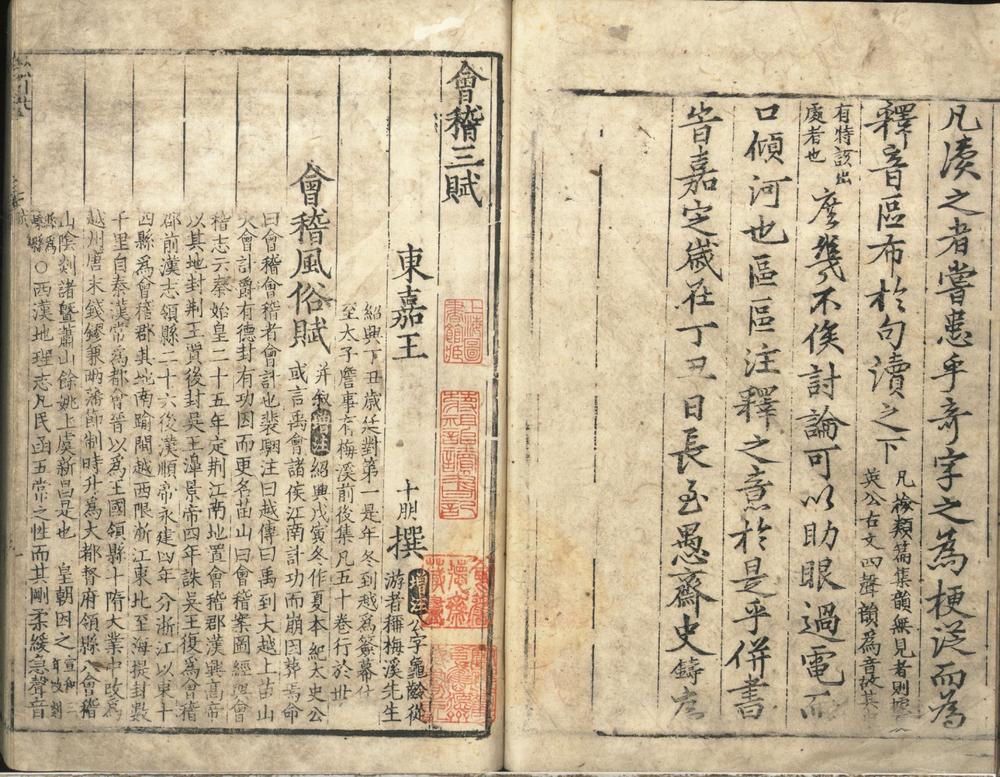 凡讀之者嘗患乎奇字之為梗從而為
釋音區布於句讀之下
凡檢類篇集韻無見者則
英公古文四聲韻為音
有特該出
處者也
庶幾不俟討論可以助眼過電而
口傾河也區區注釋之意於是乎併書
皆嘉定歲在丁丑日長至愚齋史
鑄序
會稽三賦
東嘉王
十朋
撰
增注
公字龜齡從
游者稱梅溪先生
紹興丁丑歲廷對第一是年冬到越為簽幕仕
至太子詹事有梅溪前後集凡五十卷行於世
會稽風俗賦
并叙
增注
紹興戊寅冬作夏本紀太史公
或言禹會諸侯江南計功而崩因葬焉命
曰會稽會稽者會計也裴駰注曰越傳曰禹到大越上苗山
大會計爵有德封有功因而更名苗山曰會稽案圖經與會
稽志云秦始皇二十五年定荆江南地置會稽郡漢興高帝
以其地封荆王賈後封吳王濞景帝四年誅吳王復為會稽
郡前漢志領縣二十六後漢順帝永建四年分浙江以東十
四縣為會稽郡其地南踰閩越西限浙江東北至海提封數
千里自秦漢常為都會晉以為王國領縣十隋大業中改為
越州唐末錢鏐兼兩藩節制時升為大都督府領縣八會稽
山陰剡諸暨蕭山餘姚上虞新昌是也
皇朝因之
宣和三
年改剡
縣為
嵊縣
○西漢地理志凡民函五常之性而其剛柔緩急聲音
上海圖
書館藏